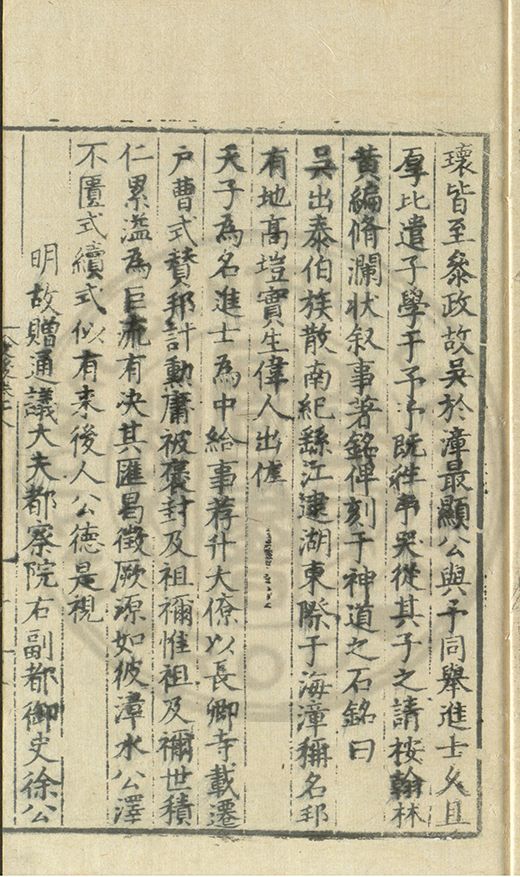 瓌皆至叅政故吳於漳最顯公與予同舉進士久且
厚比遣子學于予予旣徃弔哭從其子之請桉翰林
黄編脩瀾狀叙事著銘俾刻于神道之石銘曰
吳出泰伯族散南紀繇江逮湖東際于海漳稱名邦
有地高塏實生偉人出傕
天子為名進士為中給事荐升大僚以長卿寺載遷
户曹式賛邦計勳庸被襃封及祖禰惟祖及禰世積
仁累溢為巨流有决其匯曷徵厥源如彼漳水公澤
不匱式續式似有来後人公德是視
明故贈通議大夫都察院右副都御史徐公